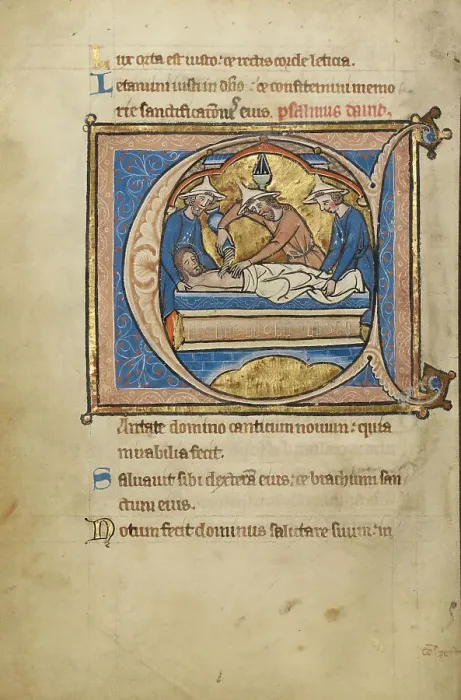 Lux orta est iusto: et rectis corde leticia.
Letamini iusti in dño: et confitemini memo
rie eius. psalmus dauid.
CAntate domino canticum nouum: quia
mirabilia fecit.
Saluauit sibi dexterā eius: et brachium san
ctum eius.
Notum fecit dominus salutare suum: in